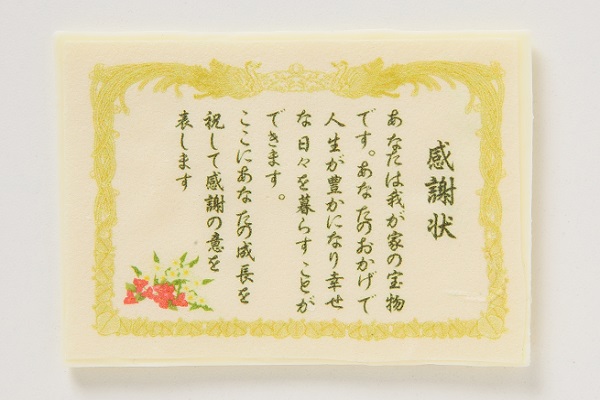 感謝状
あなたは我が家の宝物
です。あなたのおかげで
人生が豊かになり幸せ
な日々を暮らすことが
できます。
ここにあなたの成長を
祝して感謝の意を
表します